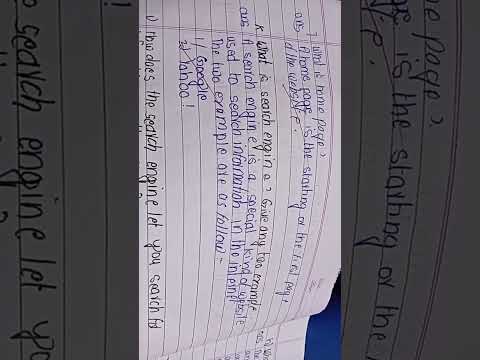 7 What is home page?
ans A home page is the starting or the first page
of the website.
K. What is search engine? Give any two example
ans A search engine is a special kind of website
used to search information in the internet
The two example are as follow:-
1) Google
2) Yahoo!
i) How does the search engine let you search fo